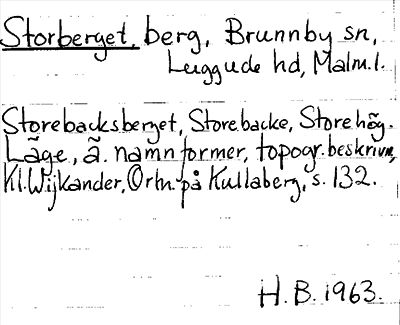 Storberget, berg, Brunnby sn,
Luggude hd, Malm.l.
Storebacksberget, Storebacke, Storehög.
Läge, ä. namnformer, topogr. beskrivn,
Kl. Wijkander, Ortn. på Kullaberg, s. 132.
H. B. 1963.